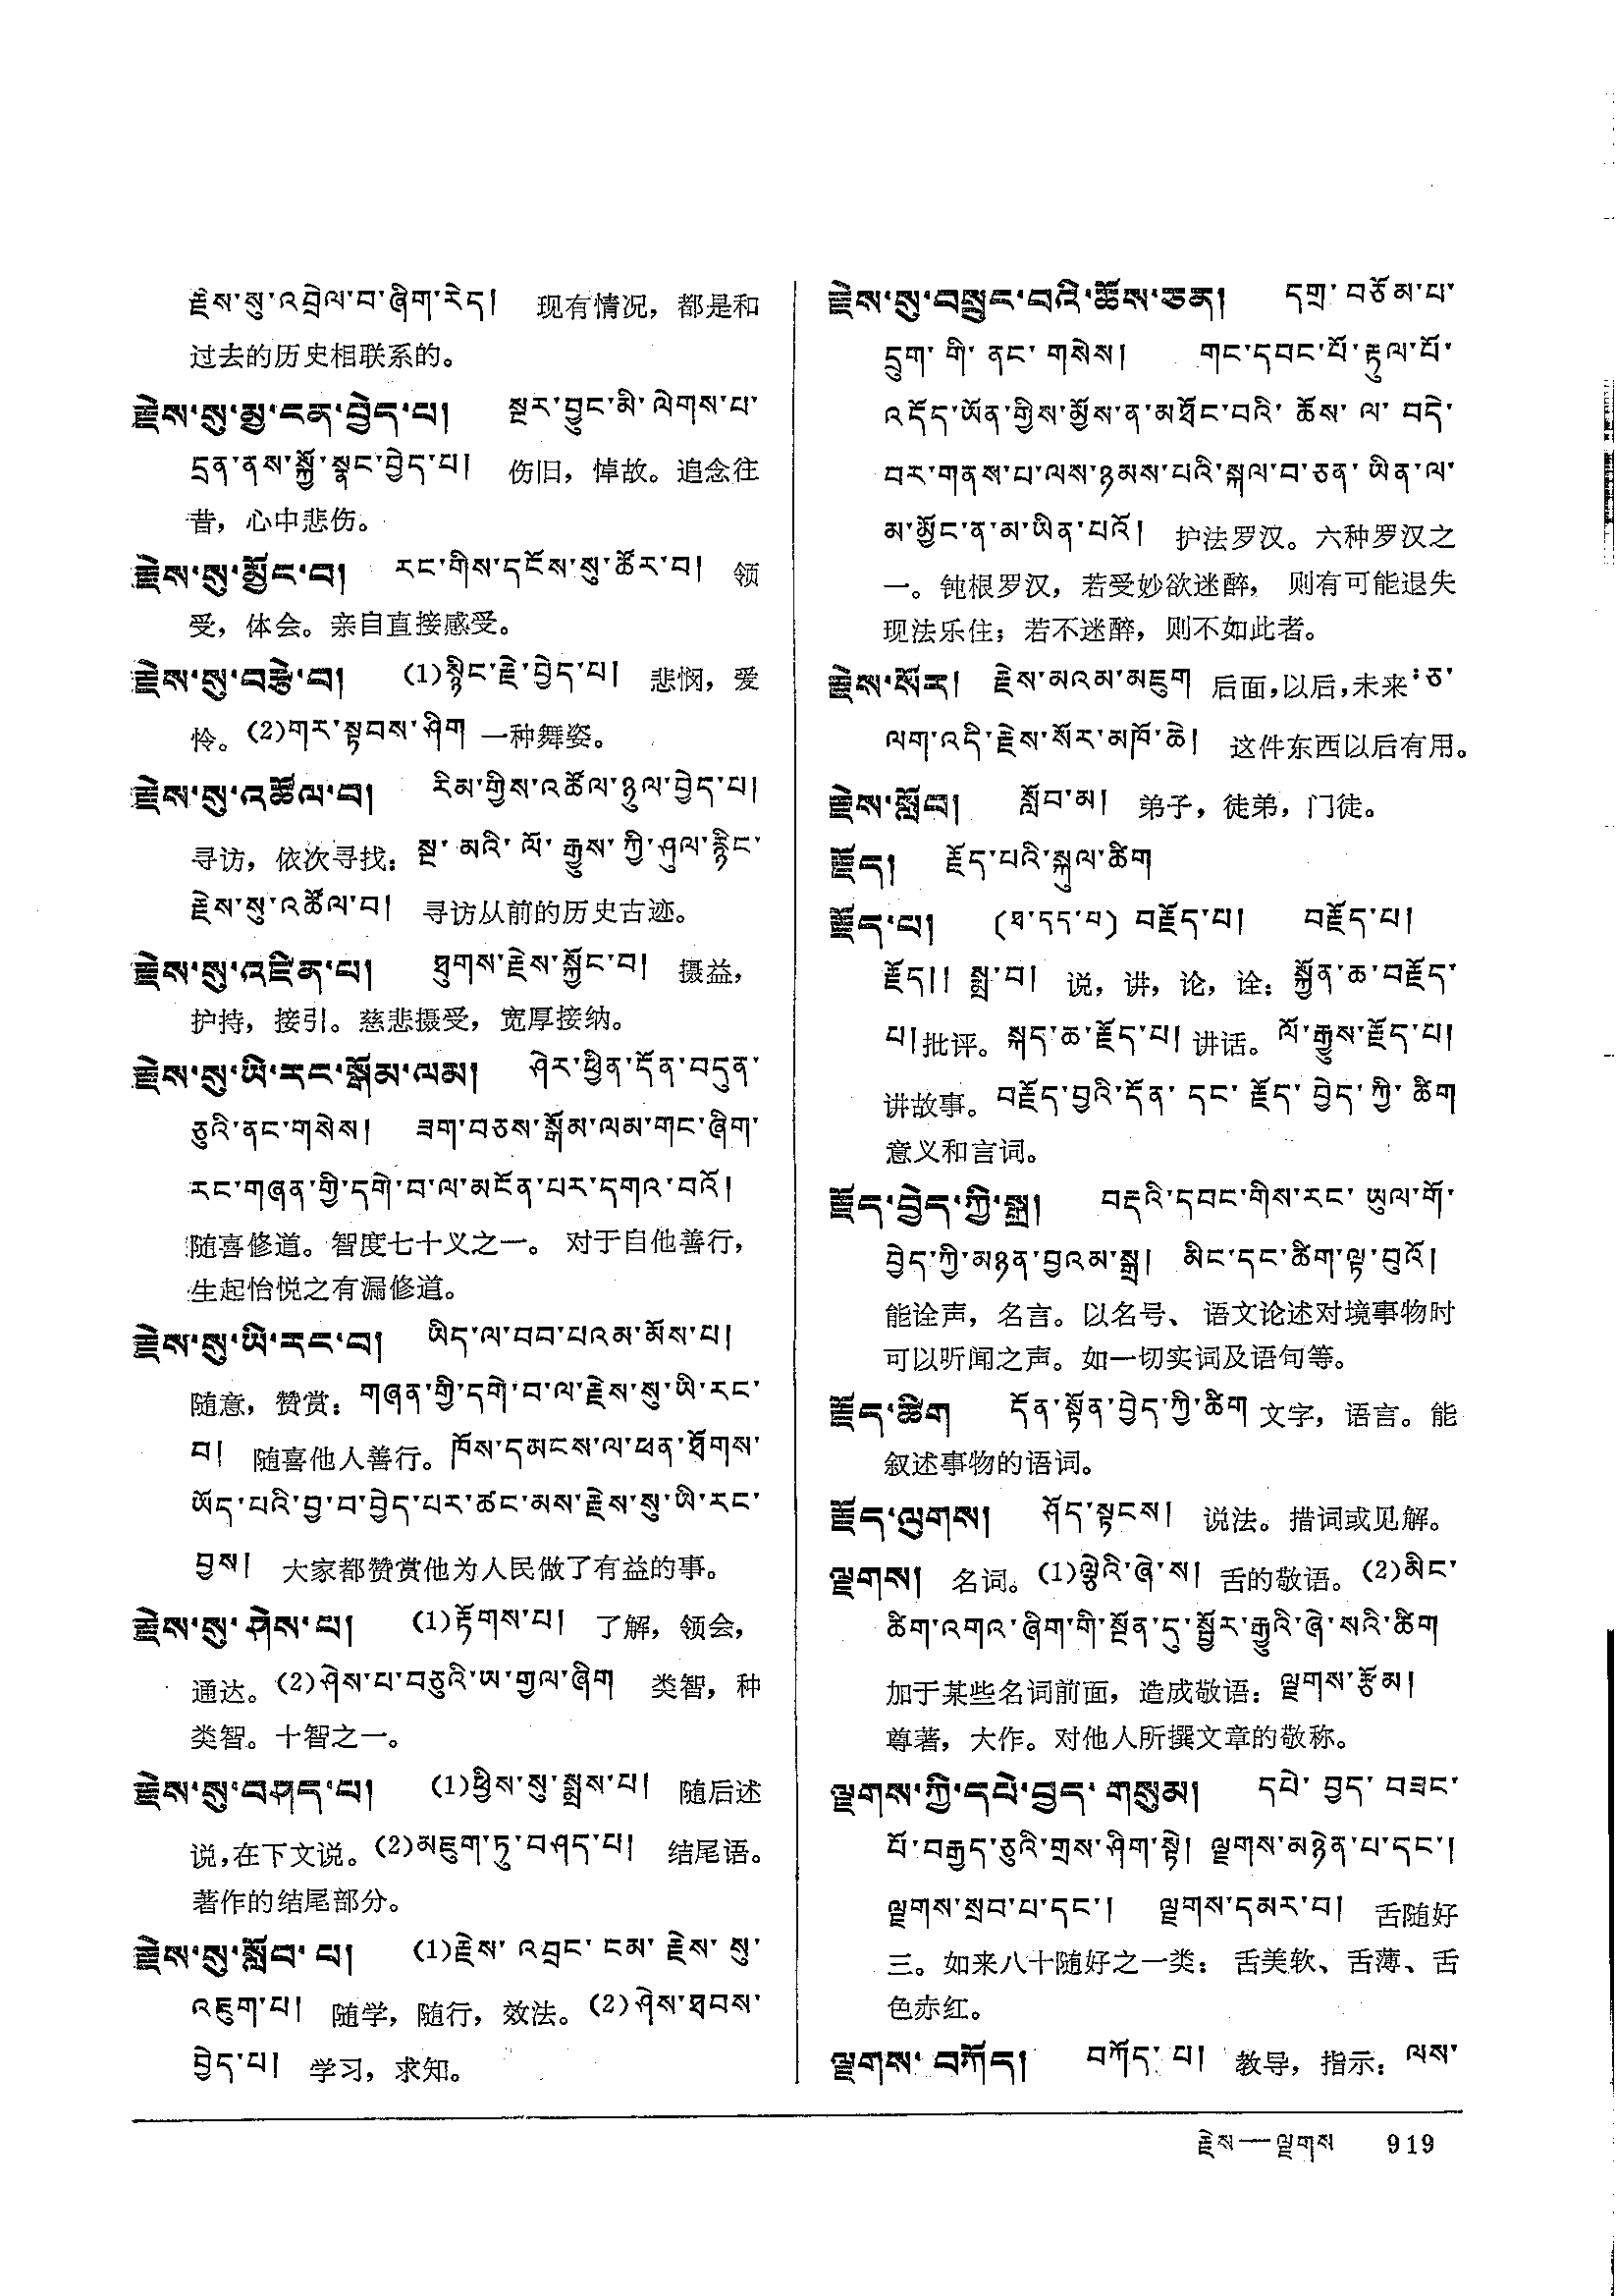 རྗེས་སུ་འབྲེལ་བ་ཞིག་རེད། 现有情况，都是和
过去的历史相联系的。
རྗེས་སུ་མྱ་ངན་བྱེད་པ། སྔར་བྱུང་མི་ལེགས་པ་
དྲན་ནས་སྐྱོ་སྣང་བྱེད་པ། 伤旧，悼故。追念往
昔，心中悲伤。
རྗེས་སུ་མྱོང་བ། རང་གིས་དངོས་སུ་ཚོར་བ། 领
受，体会。亲自直接感受。
རྗེས་སུ་བརྩེ་བ། (1)སྙིང་རྗེ་བྱེད་པ། 悲悯，爱
怜。(2)གར་སྟབས་ཤིག 一种舞姿。
རྗེས་སུ་འཚོལ་བ། རིམ་གྱིས་འཚོལ་ཉུལ་བྱེད་པ།
寻访，依次寻找：སྔ་མའི་ལོ་རྒྱུས་ཀྱི་ཤུལ་རྙིང་
རྗེས་སུ་འཚོལ་བ། 寻访从前的历史古迹。
རྗེས་སུ་འཛིན་པ། ཐུགས་རྗེས་སྐྱོང་བ། 摄益，
护持，接引。慈悲摄受，宽厚接纳。
རྗེས་སུ་ཡི་རང་སྒོམ་ལམ། ཤེར་ཕྱིན་དོན་བདུན་
ཅུའི་ནང་གསེས། ཟག་བཅས་སྒོམ་ལམ་གང་ཞིག་
རང་གཞན་གྱི་དགེ་བ་ལ་མངོན་པར་དགའ་བའོ།
随喜修道。智度七十义之一。 对于自他善行，
生起怡悦之有漏修道。
རྗེས་སུ་ཡི་རང་བ། ཡིད་ལ་བབ་པའམ་མོས་པ།
随意，赞赏：གཞན་གྱི་དགེ་བ་ལ་རྗེས་སུ་ཡི་རང་
བ། 随喜他人善行。ཁོས་དམངས་ལ་ཕན་ཐོགས་
ཡོད་པའི་བྱ་བ་བྱེད་པར་ཚང་མས་རྗེས་སུ་ཡི་རང་
བྱས། 大家都赞赏他为人民做了有益的事。
རྗེས་སུ་ཤེས་པ། (1)རྟོགས་པ། 了解，领会，
通达。(2)ཤེས་པ་བཅུའི་ཨ་གྱལ་ཞིག 类智，种
类智。十智之一。
རྗེས་སུ་བཤད་པ། (1)ཕྱིས་སུ་སྨྲས་པ། 随后述
说，在下文说。(2)མཇུག་ཏུ་བཤད་པ། 结尾语。
著作的结尾部分。
རྗེས་སུ་སློབ་པ། (1)རྗེས་འབྲང་ངམ་རྗེས་སུ་
འཇུག་པ། 随学，随行，效法。(2)ཤེས་ཐབས་
བྱེད་པ། 学习，求知。
རྗེས་སུ་བསྲུང་བའི་ཆོས་ཅན། དགྲ་བཅོམ་པ་
དྲུག་གི་ནང་གསེས། གང་དབང་པོ་རྟུལ་པོ་
འདོད་ཡོན་གྱིས་མྱོས་ན་མཐོང་བའི་ཆོས་ལ་བདེ་
བར་གནས་པ་ལས་ཉམས་པའི་སྐལ་བ་ཅན་ཡིན་ལ་
མ་མྱོང་ན་མ་ཡིན་པའོ། 护法罗汉。六种罗汉之
一。钝根罗汉，若受妙欲迷醉， 则有可能退失
现法乐住；若不迷醉，则不如此者。
རྗེས་སོར། རྗེས་མའམ་མཇུག 后面，以后，未来：ཅ་
ལག་འདི་རྗེས་སོར་མཁོ་ཆེ། 这件东西以后有用。
རྗེས་སློབ། སློབ་མ། 弟子，徒弟，门徒。
རྗོད། རྗོད་པའི་སྐུལ་ཚིག
རྗོད་པ། (ཐ་དད་པ) བརྗོད་པ། བརྗོད་པ།
རྗོད།། སྨྲ་བ། 说，讲，论，诠：སྐྱོན་ཆ་བརྗོད་
པ། 批评。སྐད་ཆ་རྗོད་པ། 讲话。ལོ་རྒྱུས་རྗོད་པ།
讲故事。བརྗོད་བྱའི་དོན་དང་རྗོད་བྱེད་ཀྱི་ཚིག
意义和言词。
རྗོད་བྱེད་ཀྱི་སྒྲ། བརྡའི་དབང་གིས་རང་ཡུལ་གོ་
བྱེད་ཀྱི་མཉན་བྱའམ་སྒྲ། མིང་དང་ཚིག་ལྟ་བུའོ།
能诠声，名言。以名号、 语文论述对境事物时
可以听闻之声。如一切实词及语句等。
རྗོད་ཚིག དོན་སྟོན་བྱེད་ཀྱི་ཚིག 文字，语言。能
叙述事物的语词。
རྗོད་ལུགས། ཤོད་སྟངས། 说法。措词或见解。
ལྗགས། 名词。(1)ལྕེའི་ཞེ་ས། 舌的敬语。(2)མིང་
ཚིག་འགའ་ཞིག་གི་སྔོན་དུ་སྦྱོར་རྒྱུའི་ཞེ་སའི་ཚིག
加于某些名词前面，造成敬语：ལྗགས་རྩོམ།
尊著，大作。对他人所撰文章的敬称。
ལྗགས་ཀྱི་དཔེ་བྱད་གསུམ། དཔེ་བྱད་བཟང་
པོ་བརྒྱད་ཅུའི་གྲས་ཤིག་སྟེ། ལྗགས་མཉེན་པ་དང་།
ལྗགས་སྲབ་པ་དང་། ལྗགས་དམར་བ། 舌随好
三。如来八十随好之一类： 舌美软、舌薄、舌
色赤红。
ལྗགས་བཀོད། བཀོད་པ། 教导，指示：ལས་
རྗེས—ལྗགས 919